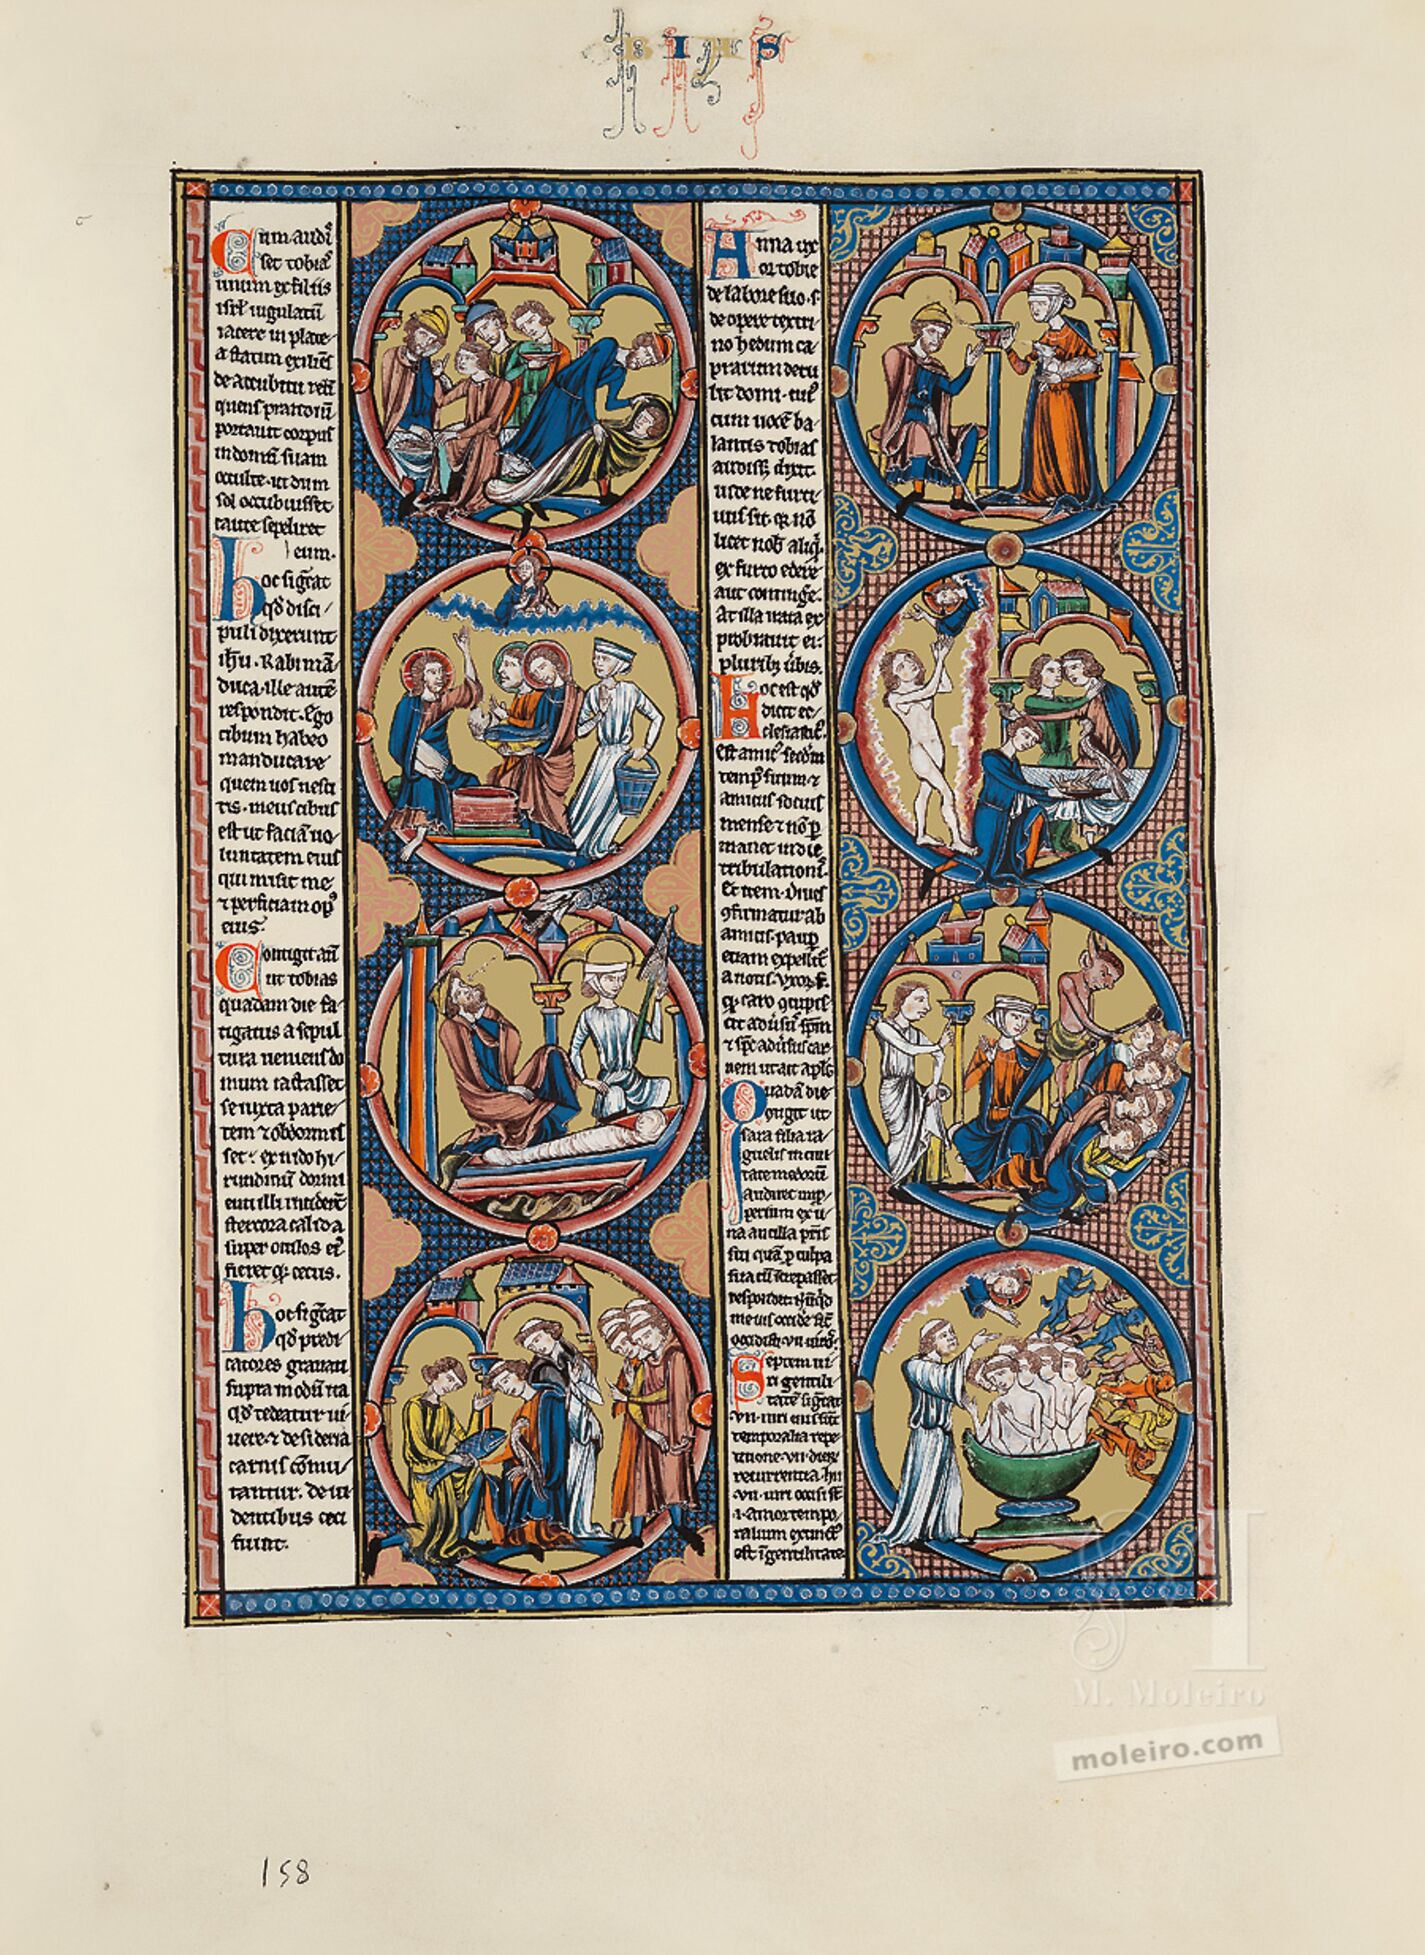 BIAS
Cum audi
set tobias
unum ex filiis
isrl iugulatu
iacere in plate
a statim exiliens
de accubitu relin
quens prandium
portavit corpus
in domum suam
occulte ut dum
sol occubuisset
caute sepeliret
eum.
hoc signat
qd disci
puli dixerunt
ihu. Rabi man
duca. ille autem
respondit. Ego
cibum habeo
manducare
quem uos nesci
tis. meus cibus
est ut faciam uo
luntatem eius
qui misit me
et perficiam opus
eius.
Contigit autem
ut tobias
quadam die fa
tigatus a sepul
tura ueniens do
mum iactasset
se iuxta parie
tem et obdormis
set. ex nido hi
rundinum dormi
enti illi inciderent
stercora calida
super oculos et
fieret que cecus.
hoc signat
qd predi
catores grauati
supra modum ita
qd tedeat ui
uere et desideria
carnis commu
tantur. de ui
dentibus ceci
fiunt.
Anna ux
or tobie
de labore suo s.
de opere textri
no hedum ca
prarum detu
lit domi. cuius
cum uocem ba
lantis tobias
audisset dixit.
uide ne furti
uus sit. quia non
licet nobis aliquid
ex furto edere
aut contingere.
At illa irata ex
probrauit ei
pluribus uerbis.
Hoc est quod
dicit ec
clesiasticus.
est amicus secundum
tempus suum et
amicus socius
mense et non per
manet in die
tribulationis.
Et item. diues
confirmatur ab
amicis. pauper
etiam expellitur
a notis. uxor s.
quia caro concupis
cit aduersus spiritum
et spiritus aduersus car
nem ut ait apostolus
Quadam die
contigit ut
sara filia ra
guelis in ciui
tate medorum
audiret impro
perium ex u
na ancilla patris
sui quam pro culpa
sua cum increpasset
respondit
me uis occidere sicut
occidisti .vii. uiros.
Septem ui
ri gentili
tatem signat
.vii. uiri eius sunt
temporalia repe
titione .vii. dierum
recurrentia. hii
.vii. uiri occisi sunt
.i. amor tempo
ralium extinctus
est in gentilitate
M. Moleiro
moleiro.com
158